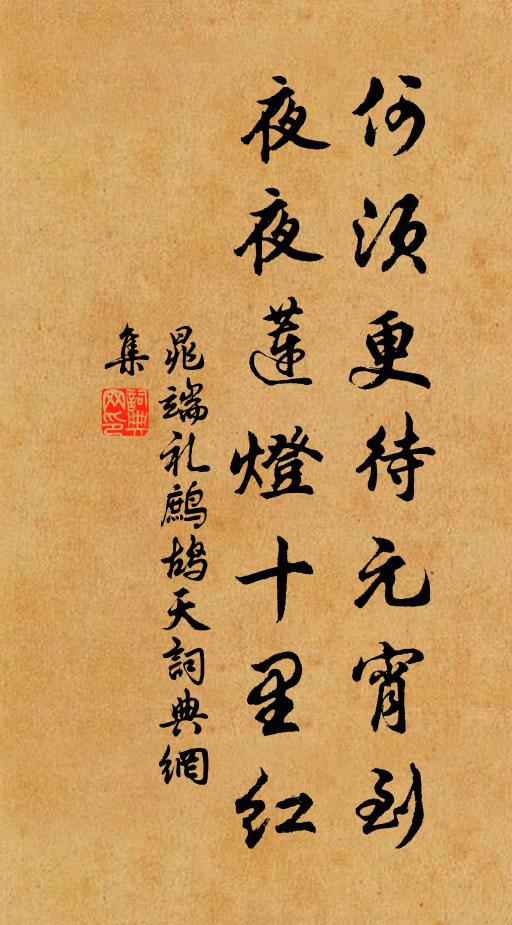 何須更待元宵到
夜夜蓮燈十里紅
晁端礼鷓鴣天詞典網
集
詞典網印